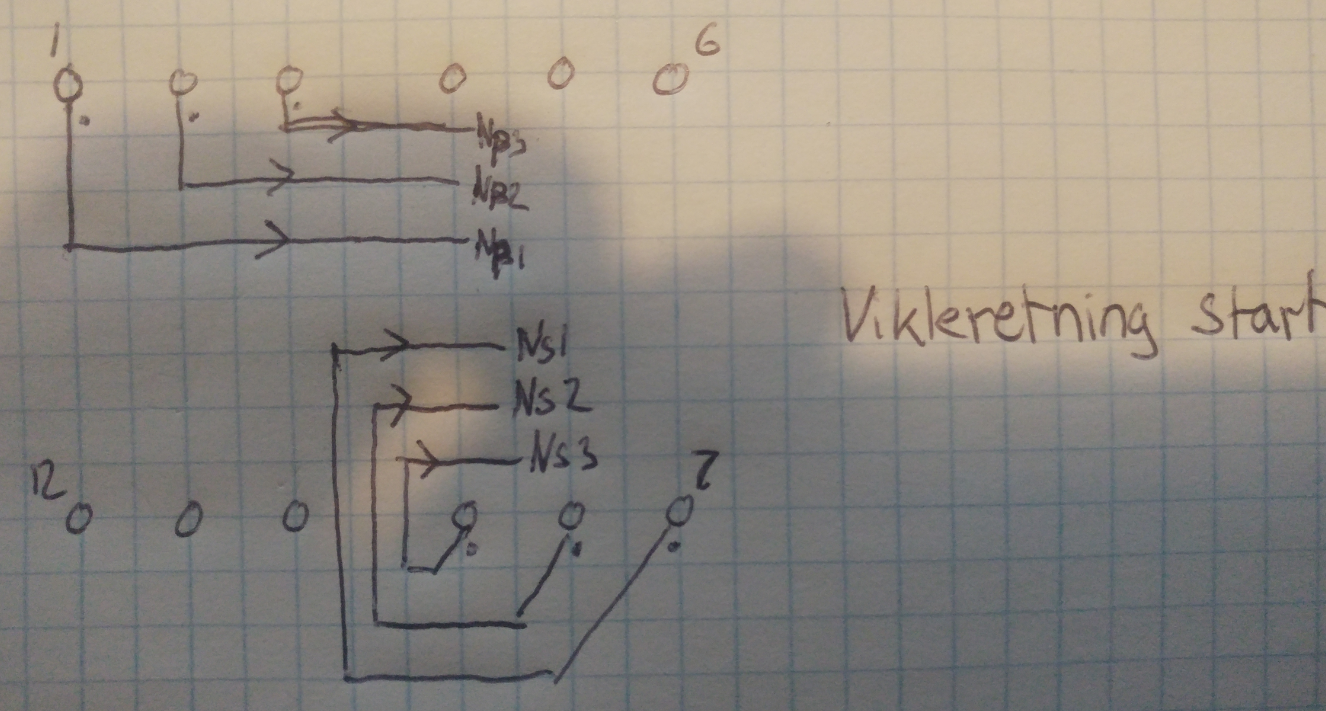 1 6
Np3
Np2
Np1
Vikleretning Start
Ns1
Ns2
Ns3
12 7